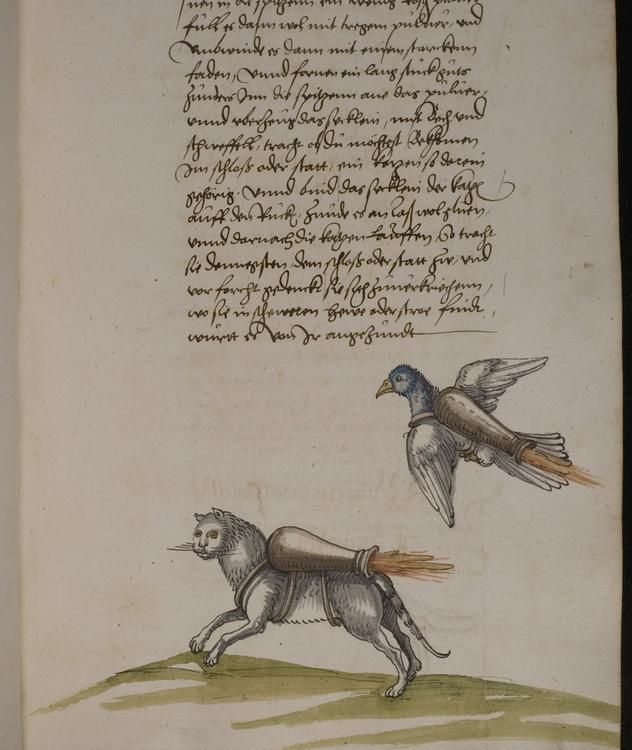 nen in die spitzenn ein wenig
füll es dann wol mit truckem puluer, vnd
vnnd vorwinde es dann mit einem starckenn
faden, vnnd fornen ein lang stuck guts
zunders Inn die spitzenn ane das puluer,
vnnd vberzeug das secklein, mit Bech und
schweffell, tracht ob du möchtest Bekhomen
Im schloß oder statt, ein katzen so darein
gehörig. Vnnd bind das secklein der katz
auff den Ruck, Zunde es an laß wol gluen,
vnnd darnach die katzen lauffen, So tracht
sie dem negsten, dem schloß oder statt zue, vnd
vor forcht gedenckt sie sich zuuerkriechenn,
wo sie in scheweren hewe oder stroe findt,
wurtt es von Ir angezundt